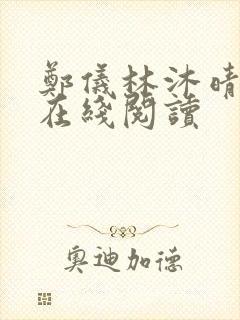 鄭儀林沐晴
在綫閱讀
奧迪加德